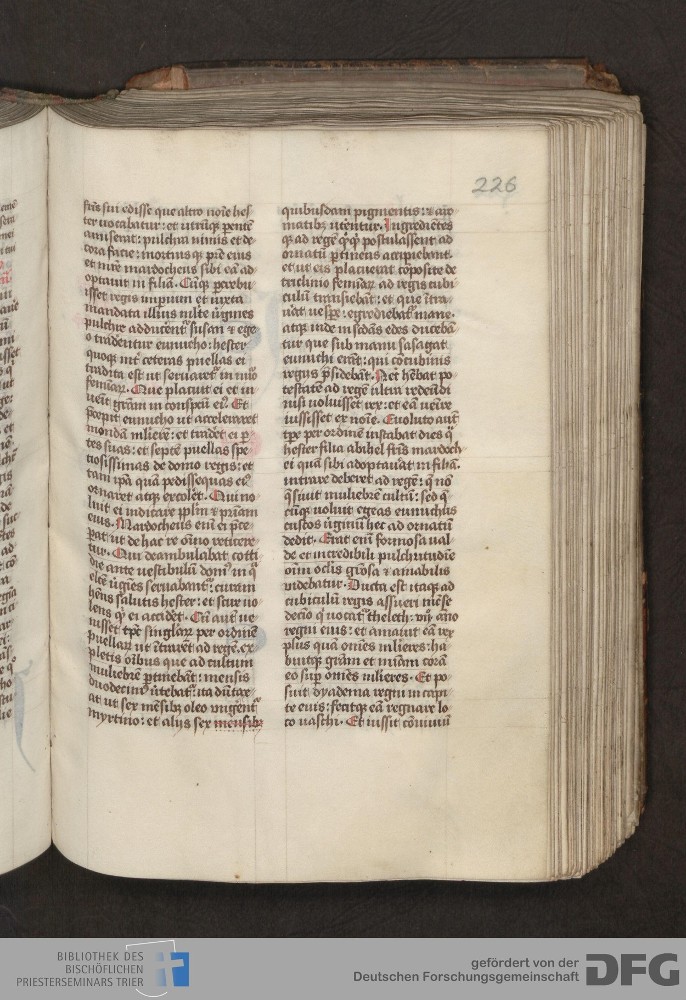 226
fr̄is sui edisse que altro no͞ie hes
ter uocabatur: et utrūq; parentē
amiserat: pulchra nimis et de
cora facie: mortuis q; pr̄e eius
et mr̄e mardocheus sibi eā ad
optauit in filiā. Cūq; percrebu
isset regis imperium et iuxta
mandata illius ml̄te ūgines
pulchre adducerent͛ susan ⁊ ege
o traderentur eunucho: hester
quoq; int͛ ceteras puellas ei
tradita est ut seruaret͛ in nūo
feminaꝝ. Que placuit ei et in
uēit gr̄am in conspcū ei9. Et
precepit eunucho ut acceleraret
mondū mliebrē: et traderet ei p͛
tes suas: et septē puellas spe
tiosissimas de domo regis: et
tam ipā quā pedissequas ei9
ornaret atq; excoleret. Que no
luit ei indicare pplm̄ ⁊ pr̄iam
suam. Mardocheus enī ei p͛ce
perat ut de hac re oīno reticere
tur. Qui deambulabat cotti
die ante uestibulū dom9 in q͛
elc̄e ūgīes seruabant͛: curam
hēns salutis hester: et scire uo
lens qͥ ei accideret. Cū aut̄ ue
nisset tp̄s singlaꝝ per ordinē
puellaꝝ ut ītrarēt ad regē. ex
pletis oībus que ad cultum
muliebrē ꝑtinebāt: mensis
duodecim9 ūtebat͛: ita dūtax
at ut sex mēsibꝫ oleo ungerent͛
myrtino: et alijs sex mensibꝫ
quibusdam pigmentis: ⁊ aro
matibꝫ ūterentur. Ingrediētes
q; ad regē qͥcqͥd postulassent ad
ornatū ꝑtinens accipiebant.
et ut eis placuerat cōposite de
triclinio feminaꝝ ad regis cubi
culū transiebāt: et que ītra
uāt uespe: egrediebat͛ mane.
atq; inde in scdās edes duceba
tur que sub manu sasagati
eunuchi erāt: qui cōcubinis
regis p͛sidebāt. Nec hēbat po
testatē ad regē ultra redeūdi
nisi uoluisset rex: et eā uenire
iussisset ex no͞ie. Euoluto aut̄
tpr̄e per ordinē instabat dies q͛
hester filia abihel fr̄is mardoch
ei quā sibi adoptauāt in filiā.
intrare deberet ad regē: q̄ nō
q̄siuit muliebrē cultū: sed q̄
cūq; uoluit egeas eunuchus
custos ūginū hec ad ornatū
dedit. Erat enī formosa ual
de et incredibili pulchritudine
oīm oclis gr̄osa ⁊ amabilis
uidebatur. Ducta est itaq; ad
cubiculū regis assueri mēse
decīo qͥ uocat͛ theleth: vijͦ. āno
regni eius: et amauit eā rex
plus quā omēs mlieres: ha
buitq; grām et mīam corā
eo sup̄ omēs mlieres. Et po
suit dyadema regni in capi
te eius: fecitq; eā regnare lo
co uasthi. Et iussit cōuiuiū
BIBLIOTHEK DES
BISCHÖFLICHEN
PRIESTERSEMINARS TRIER
gefördert von der
Deutschen Forschungsgemeinschaft
DFG